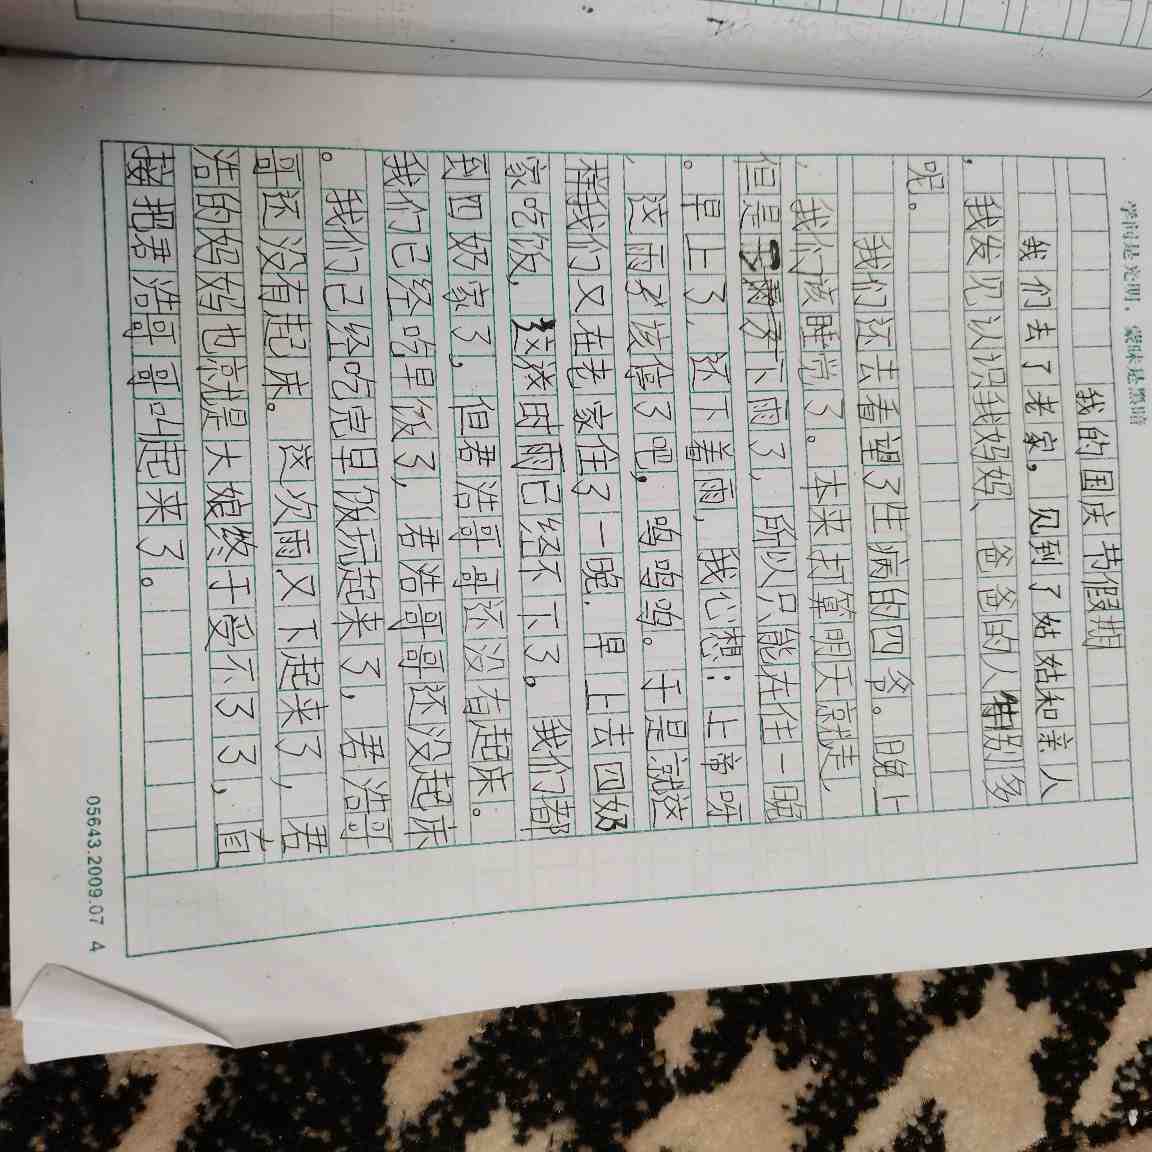 学问是光明，蒙昧是黑暗
我的国庆节假期
我们去了老家，见到了姑姑和亲人
，我发见认识我妈妈、爸爸的人的多
呢。
我们还去看望了生病的四爷。晚上
，我们该睡觉了。本来打算明天就走，
但是下雨了，所以只能在住一晚
。早上了，还下着雨，我心想：上帝呀
，这雨才该停了吧，呜呜呜。于是就这
样我们又在老家住了一晚，早上去四奶
家吃饭，这时雨已经不下了。我们都
到四奶家了，但君浩哥哥还没有起床。
我们已经吃早饭了，君浩哥哥还没起床
。我们已经吃完早饭玩起来了，君浩哥
哥还没有起床。这次雨又下起来了，君
浩的妈妈也就是大娘终于受不了了，直
接把君浩哥哥叫起来了。
05643.2009.07 4